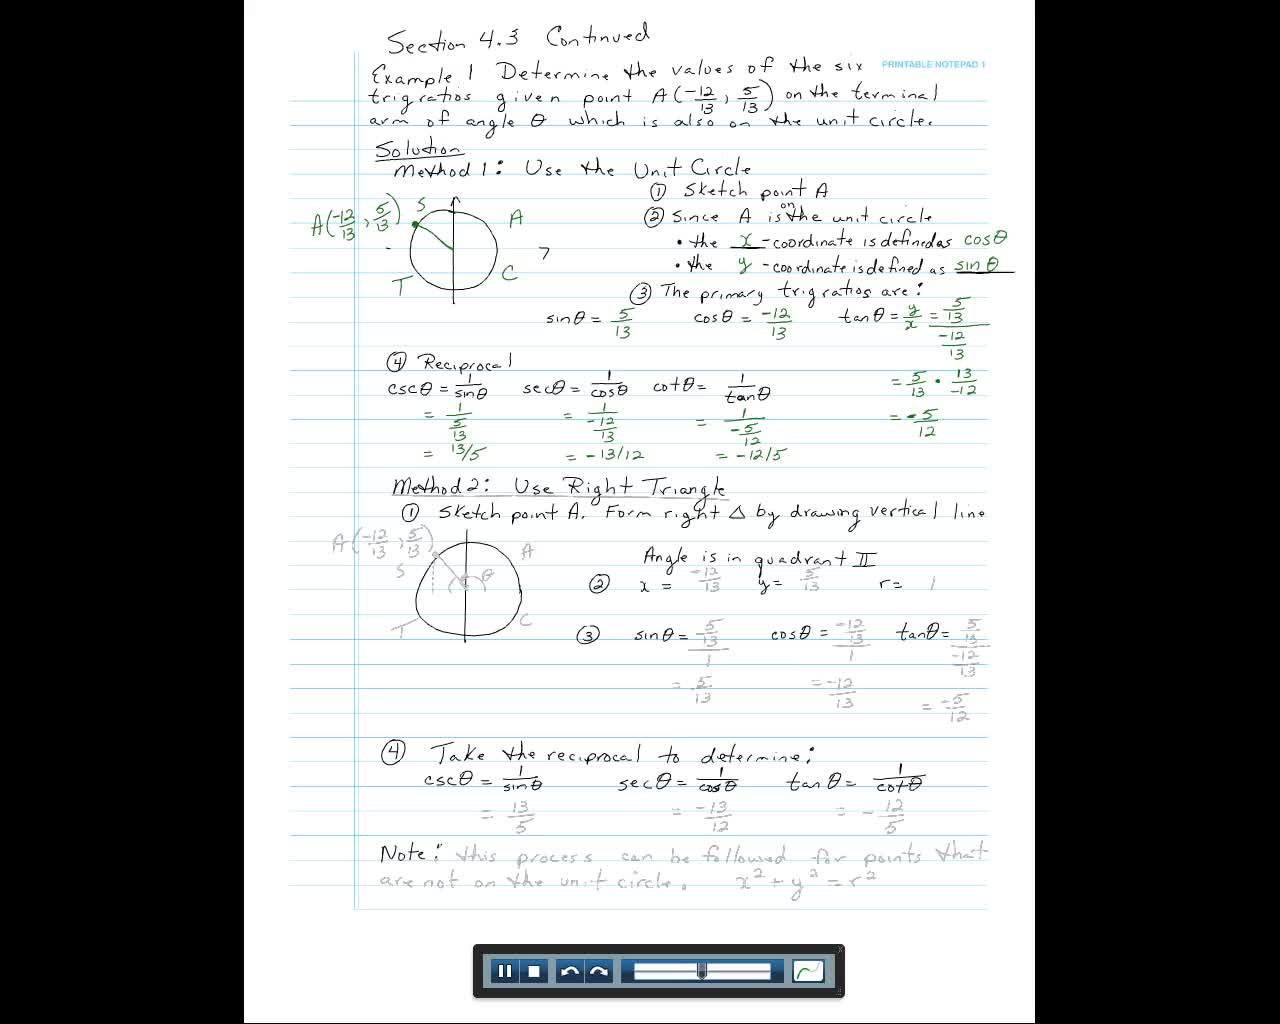 Section 4.3 Continued
PRINTABLE NOTEPAD 1
Example 1 Determine the values of the six
trig ratios given point A(-12/13, 5/13) on the terminal
arm of angle θ which is also on the unit circle.
Solution
Method 1: Use the Unit Circle
① Sketch point A
A(-12/13, 5/13) S A
T C
② Since A is on the unit circle
• the x -coordinate is defined as cosθ
• the y -coordinate is defined as sinθ
③ The primary trig ratios are:
sinθ = 5/13 cosθ = -12/13 tanθ = y/x = 5/13 / -12/13
= 5/13 • 13/-12
= -5/12
④ Reciprocal
cscθ = 1/sinθ secθ = 1/cosθ cotθ = 1/tanθ
= 1/(5/13) = 1/(-12/13) = 1/(-5/12)
= 13/5 = -13/12 = -12/5
Method 2: Use Right Triangle
① Sketch point A. Form right Δ by drawing vertical line
A(-12/13, 5/13) A
S θ
T C
Angle is in quadrant II
② x = -12/13 y = 5/13 r = 1
③ sinθ = 5/13 / 1 cosθ = -12/13 / 1 tanθ = 5/13 / -12/13
= 5/13 = -12/13 = -5/12
④ Take the reciprocal to determine:
cscθ = 1/sinθ secθ = 1/cosθ tanθ = 1/cotθ
= 13/5 = -13/12 = -12/5
Note: this process can be followed for points that
are not on the unit circle. x² + y² = r²